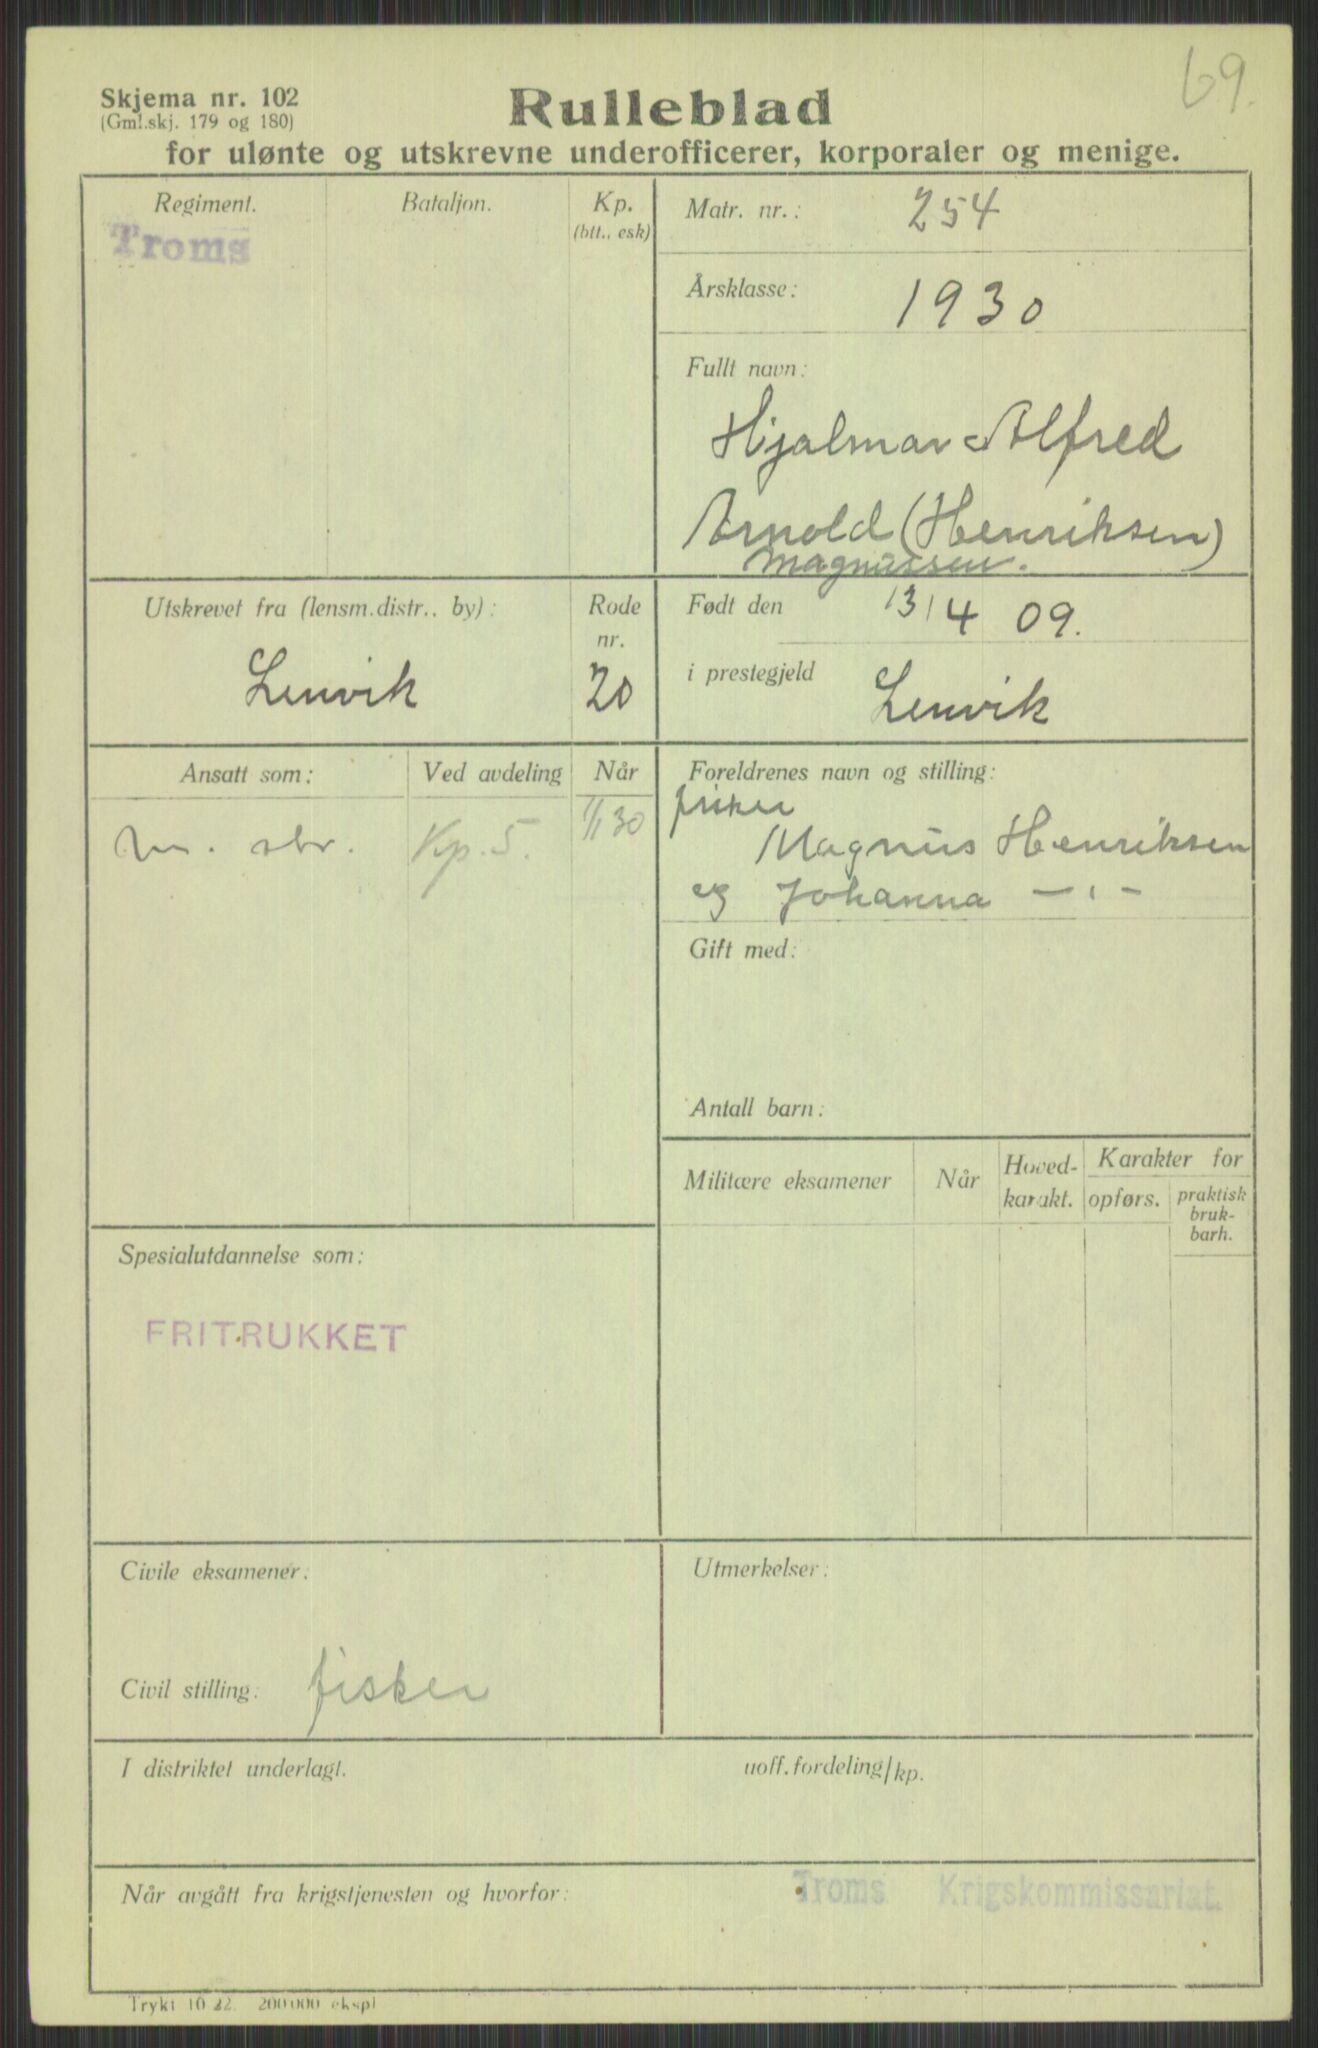 69.
Skjema nr. 102
(Gml.skj. 179 og 180)
Rulleblad
for ulønte og utskrevne underofficerer, korporaler og menige.
Regiment.
Bataljon.
Kp.
(btt., esk)
Troms
Matr. nr.: 254
Årsklasse: 1930
Fullt navn:
Hjalmar Alfred
Arnold (Henriksen)
Magnussen.
Utskrevet fra (lensm.distr., by):
Lenvik
Rode
nr.
20
Født den 13/4 09.
i prestegjeld Lenvik
Ansatt som:
Ved avdeling
Når
m. abr.
Kp. 5.
1/1 30
Foreldrenes navn og stilling:
fisker
Magnus Henriksen
og Johanna — „ —
Gift med:
Antall barn:
Militære eksamener
Når
Hoved-
karakt.
Karakter for
opførs.
praktisk
bruk-
barh.
Spesialutdannelse som:
FRITRUKKET
Civile eksamener:
Civil stilling: fisker
Utmerkelser:
I distriktet underlagt.
uoff. fordeling/kp.
Når avgått fra krigstjenesten og hvorfor:
Troms Krigskommissariat.
Trykt 10 22. 200 000 ekspl